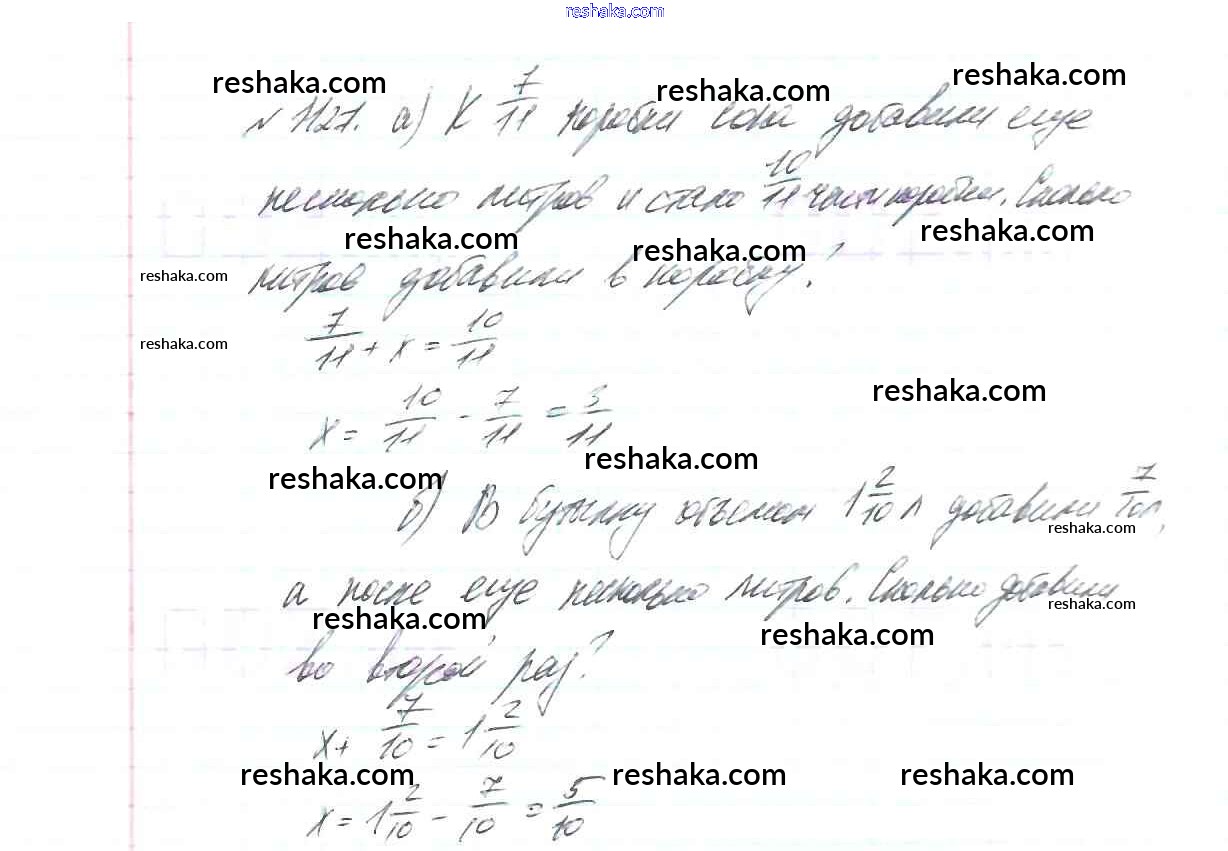 reshaka.com
reshaka.com reshaka.com reshaka.com
№ 1127. а) К 7/11 коробки сока добавили еще
несколько литров и стало 10/11 части коробки. Сколько
reshaka.com reshaka.com reshaka.com
reshaka.com
литров добавили в коробку?
7/11 + x = 10/11
reshaka.com
reshaka.com
x = 10/11 - 7/11 = 3/11
reshaka.com
reshaka.com
б) В бутылку объемом 1 2/10 л добавили 7/10 л,
reshaka.com
а после еще несколько литров. Сколько добавили
reshaka.com
reshaka.com reshaka.com
во второй раз?
x + 7/10 = 1 2/10
reshaka.com reshaka.com reshaka.com
x = 1 2/10 - 7/10 = 5/10